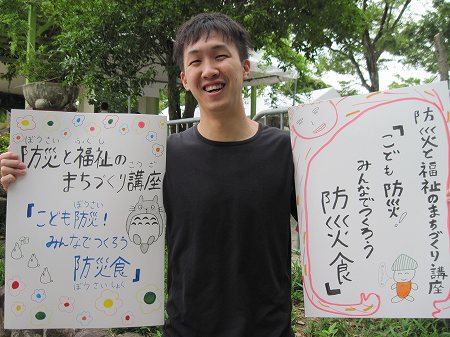 ぼうさい ふくし
防災と福祉の
こうざ
まちづくり講座
ぼうさい
「こども防災!
みんなでつくろう
防災食」
ぼうさいしょく
防災と福祉のまちづくり講座
「こども防災!
みんなでつくろう
防災食」